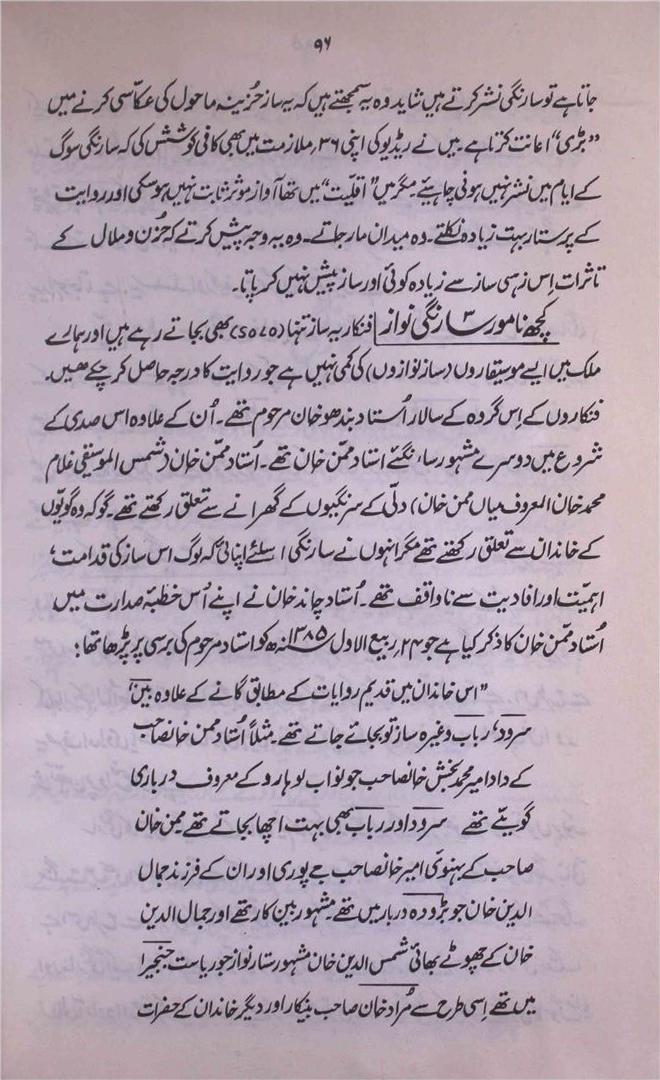 ۹۶
جاتا ہے تو سارنگی نشر کرتے ہیں شاید وہ یہ سمجھتے ہیں کہ یہ ساز حُزنیہ ماحول کی عکاسی کرنے میں
”بڑی“ اعانت کرتا ہے۔ میں نے ریڈیو کی اپنی ۳۶؍ ملازمت میں بھی کافی کوشش کی کہ سارنگی سوگ
کے ایام میں نشر نہیں ہونی چاہیئے مگر میں ”اقلیت“ میں تھا آواز موثر ثابت نہیں ہوسکی اور روایت
کے پرستار بہت زیادہ نکلتے۔ وہ میدان مار جاتے۔ وہ یہ وجہ پیش کرتے کہ حُزن و ملال کے
تاثرات اِس زہی ساز سے زیادہ کوئی اور ساز پیش نہیں کر پاتا۔
کچھ نامور سارنگی نواز ۳ فنکار یہ ساز تنہا (SOLO) بھی بجاتے رہے ہیں اور ہمارے
ملک میں ایسے موسیقاروں (ساز نوازوں) کی کمی نہیں ہے جو روایت کا درجہ حاصل کرچکے ھیں۔
فنکاروں کے اِس گروہ کے سالار اُستاد بندھو خان مرحوم تھے۔ اُن کے علاوہ اس صدی کے
شروع میں دوسرے مشہور سارنگئے استاد ممّن خان تھے۔ اُستاد ممّن خان (شمس الموسیقی غلام
محمد خان المعروف میاں ممن خان) دلّی کے سرنگیوں کے گھرانے سے تعلق رکھتے تھے۔ گو کہ وہ گویّوں
کے خاندان سے تعلق رکھتے تھے مگر انہوں نے سارنگی اسلئے اپنائی کہ لوگ اس ساز کی قدامت،
اہمیّت اور افادیت سے ناواقف تھے۔ اُستاد چاند خان نے اپنے اُس خطبۂ صدارت میں
اُستاد ممّن خان کا ذکر کیا ہے جو ۲۴؍ ربیع الاول ۱۳۸۵ھ کو استاد مرحوم کی برسی پر پڑھا تھا؛
”اس خاندان میں قدیم روایات کے مطابق گانے کے علاوہ بین،
سرود، رباب وغیرہ ساز تو بجاتے جاتے تھے۔ مثلاً اُستاد ممن خانصاحب
کے دادا میر محمد بخش خانصاحب جو نواب لوہارو کے معروف درباری
گویّے تھے سرود اور رباب بھی بہت اچھا بجاتے تھے ممن خان
صاحب کے بہنوئی امیر خانصاحب جے پوری اور ان کے فرزند جمال
الدین خان جو بڑودہ دربار میں تھے۔ مشہور بین کار تھے اور جمال الدین
خان کے چھوٹے بھائی شمس الدین خان مشہور ستار نواز جو ریاست جنجیرا
میں تھے اِسی طرح سے مُراد خان صاحب بینکار اور دیگر خاندان کے حضرات